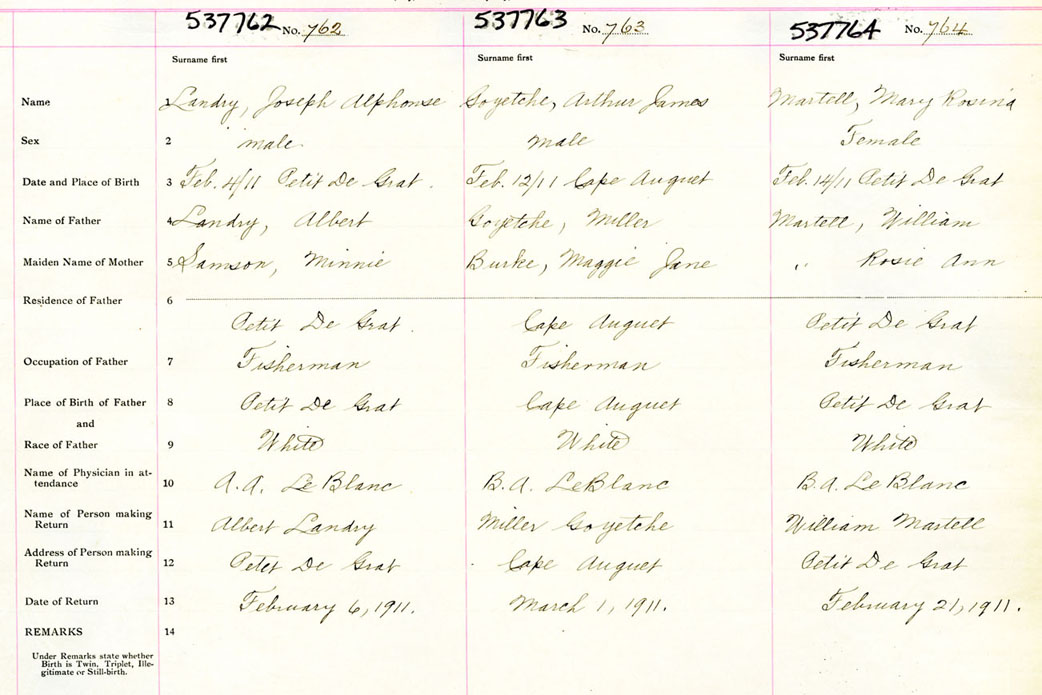 537762 No. 762 537763 No. 763 537764 No. 764
Surname first Surname first Surname first
Name 1 Landry, Joseph Alphonse Goyetche, Arthur James Martell, Mary Rosina
Sex 2 male. Male Female
Date and Place of Birth 3 Feb. 4/11 Petit De Grat. Feb. 12/11 Cape Auguet Feb. 14/11 Petit De Grat
Name of Father 4 Landry, Albert Goyetche, Miller Martell, William
Maiden Name of Mother 5 Samson, Minnie Burke, Maggie Jane " Rosie Ann
Residence of Father 6
Petit De Grat. Cape Auguet Petit De Grat
Occupation of Father 7 Fisherman Fisherman Fisherman
Place of Birth of Father 8 Petit De Grat Cape Auguet Petit De Grat
and
Race of Father 9 White White White
Name of Physician in at-
tendance 10 A.A. LeBlanc B.A. LeBlanc B.A. LeBlanc
Name of Person making
Return 11 Albert Landry Miller Goyetche William Martell
Address of Person making
Return 12 Petit De Grat Cape Auguet Petit De Grat
Date of Return 13 February 6, 1911. March 1, 1911. February 21, 1911.
REMARKS 14
Under Remarks state whether
Birth is Twin, Triplet, Ille-
gitimate or Still-birth.